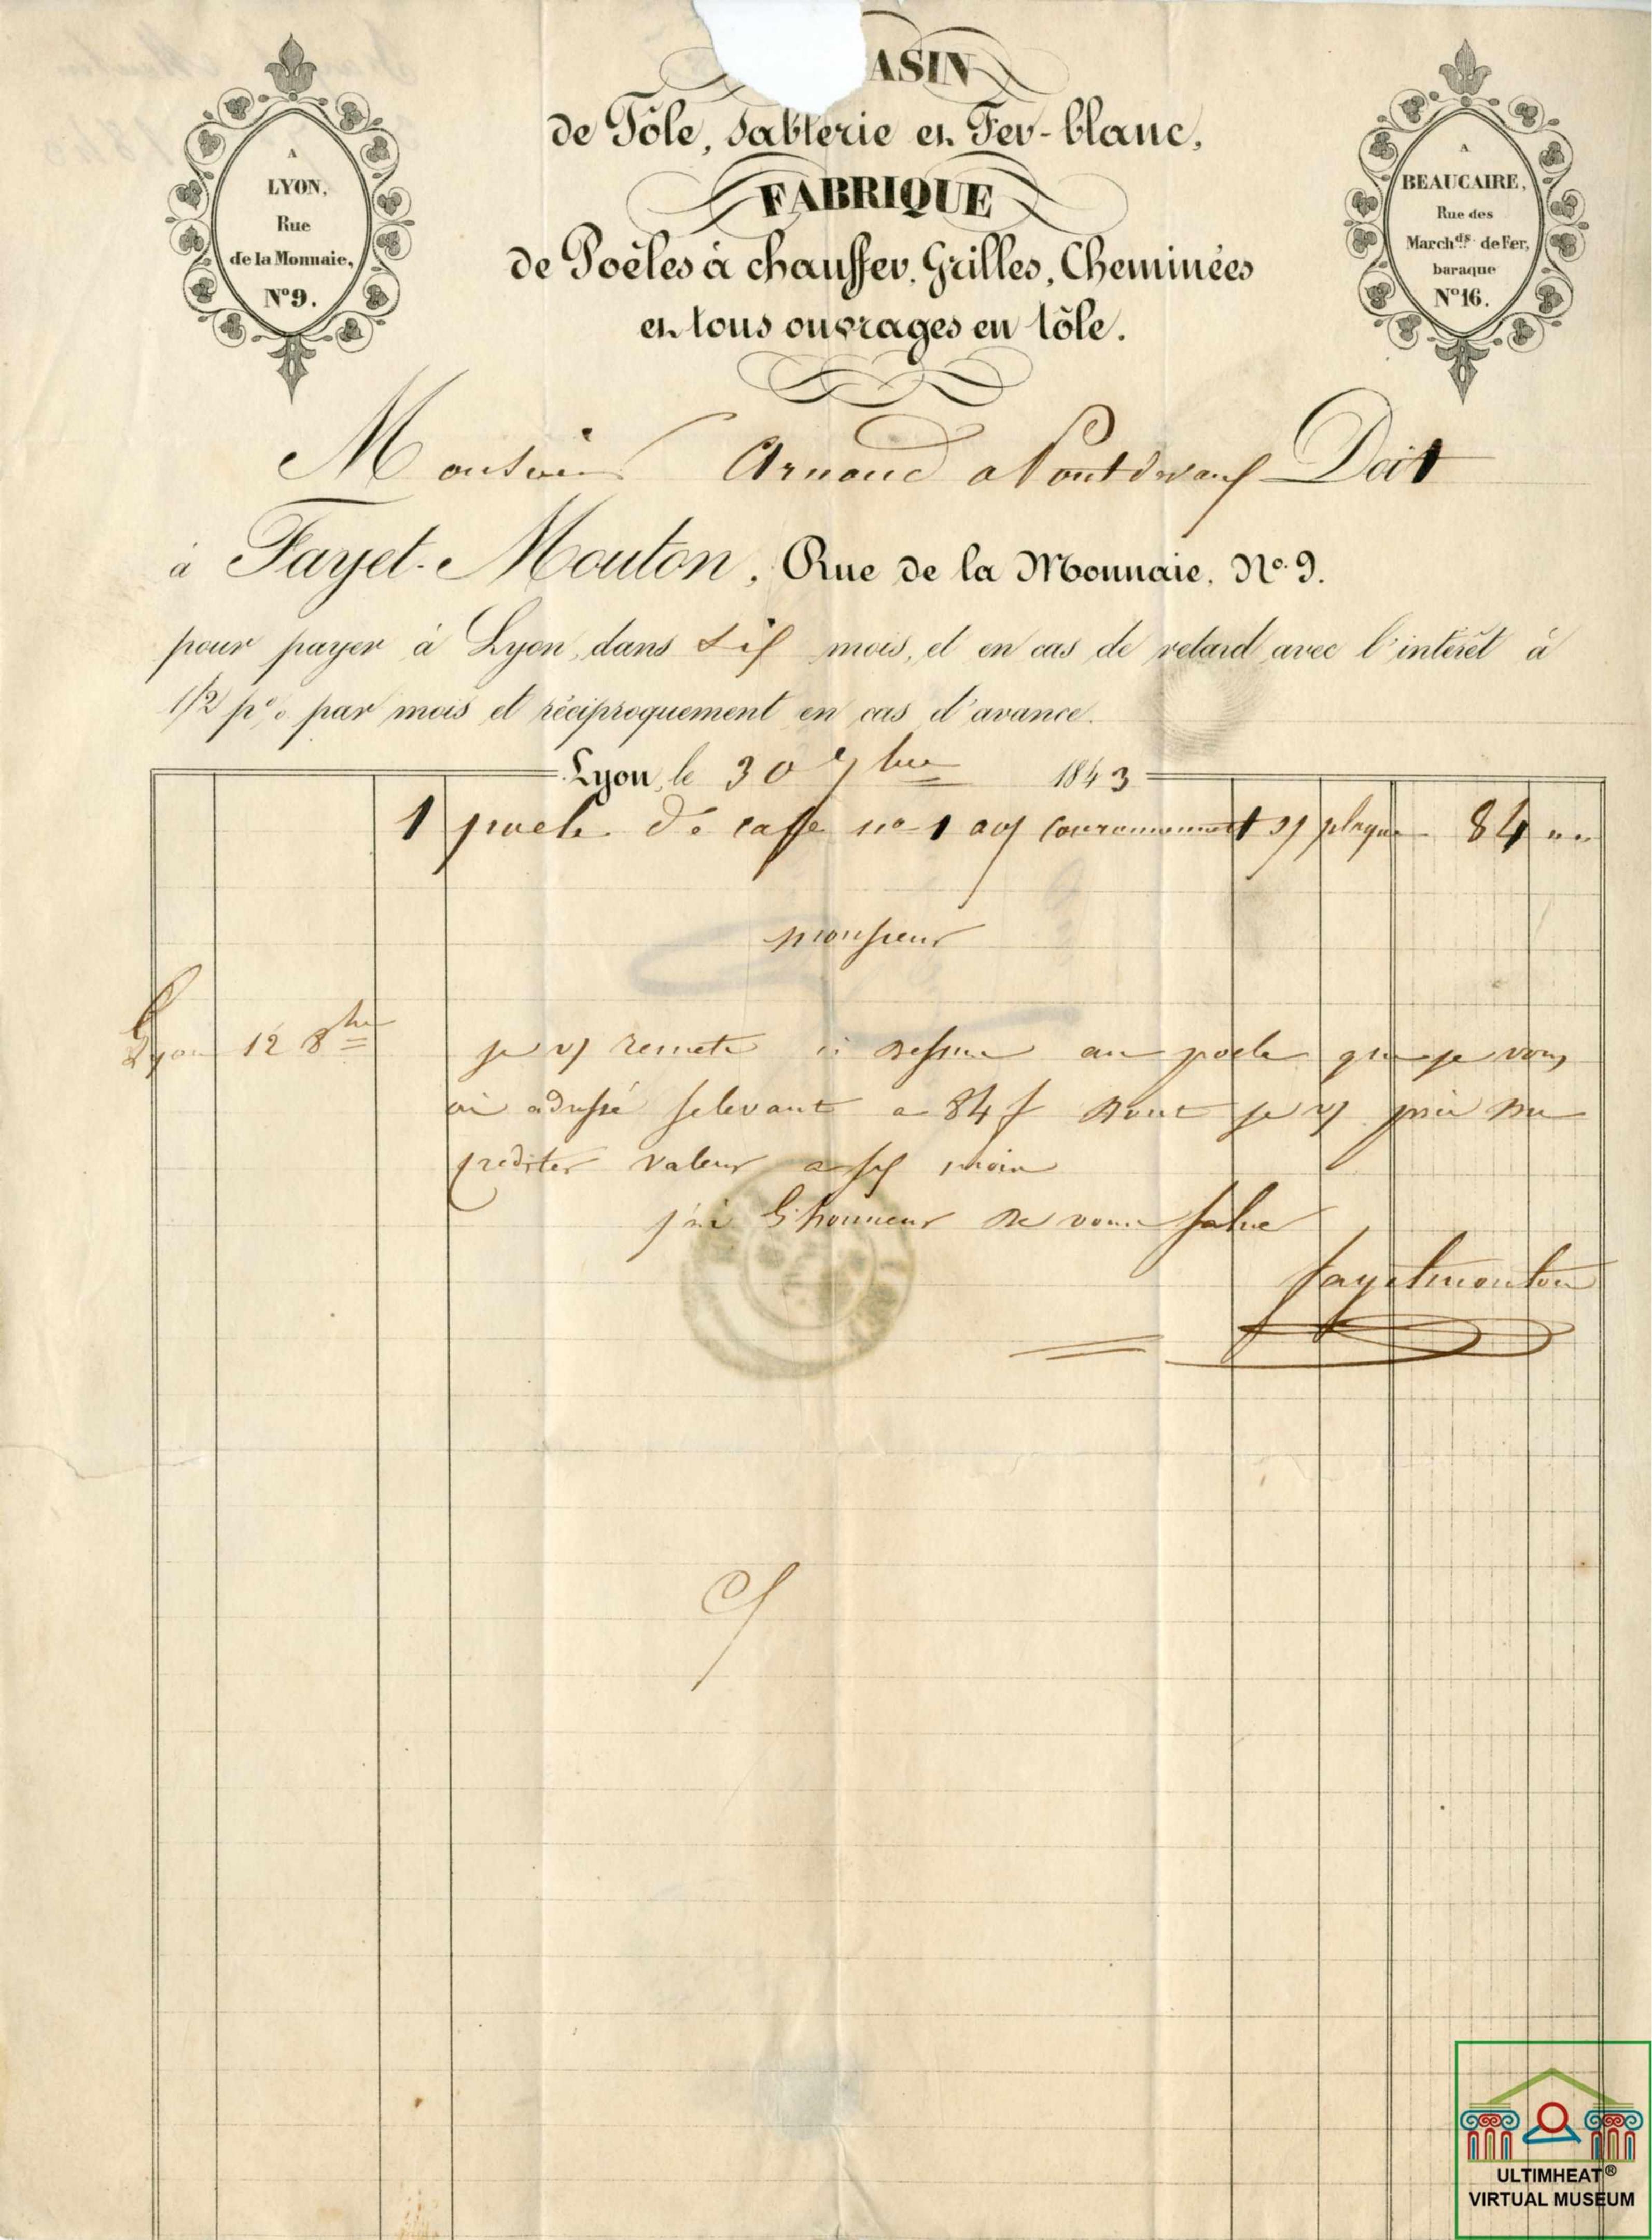 ASIN
de Tôle, Sablerie et Fer-blanc,
FABRIQUE
de Poëles à chauffer, Grilles, Cheminées
et tous ouvrages en tôle.
A
LYON,
Rue
de la Monnaie,
Nº 9.
A
BEAUCAIRE,
Rue des
March.ds de Fer,
baraque
Nº 16.
Monsieur Arnaud a Pontdevaux Doit
à Fayet-Mouton, Rue de la Monnaie, Nº 9.
pour payer à Lyon, dans six mois, et en cas de retard avec l'intérêt à
1/2 p% par mois et réciproquement en cas d'avance.
Lyon, le 30 7bre 1843
1 poele de caffe no 1 avec couronnement plaque 84 " "
monsieur
Lyon 12 8bre
je vs remets ci dessus un poele que je vous
ai adressé selevant a 84 f dont je vs prie me
crediter valeur a six mois
j'ai l'honneur de vous salue
fayetmouton
ULTIMHEAT®
VIRTUAL MUSEUM